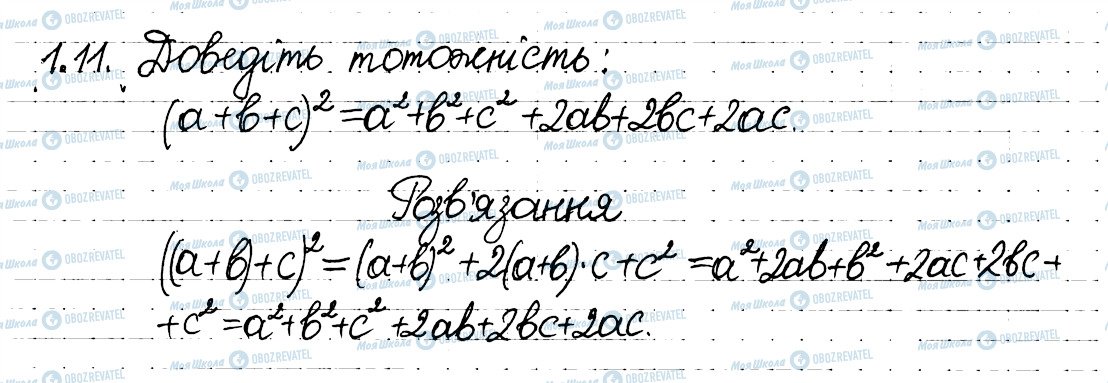 1.11. Доведіть тотожність:
(a+b+c)² = a²+b²+c²+2ab+2bc+2ac.
Розв'язання
((a+b)+c)² = (a+b)²+2(a+b)·c+c² = a²+2ab+b²+2ac+2bc+
+c² = a²+b²+c²+2ab+2bc+2ac.